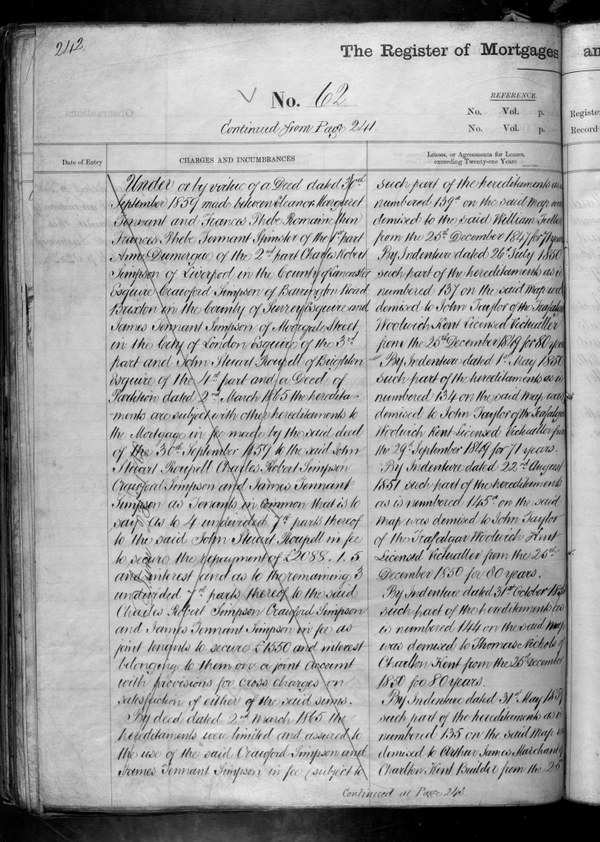 242
The Register of Mortgages
an
No. 62
REFERENCE.
No. Vol. p.
No. Vol. p.
Continued from Page 241
Registe
Record
Date of Entry
CHARGES AND INCUMBRANCES
Leases, or Agreements for Leases,
exceeding Twenty-one Years
Under or by virtue of a Deed dated 30th
September 1859 made between Eleanor Margaret
Tennant and Frances Phebe Romaine then
Frances Phebe Tennant Spinster of the 1st part
Anne Dumergue of the 2nd part Charles Robert
Simpson of Liverpool in the County of Lancaster
Esquire Crawford Simpson of Barrington Road
Brixton in the County of Surrey Esquire and
James Tennant Simpson of Moorgate Street
in the City of London Esquire of the 3rd
part and John Stuart Roupell of Brighton
Esquire of the 4th part and a Deed of
Partition dated 2nd March 1865 the heredita-
ments are subject with other hereditaments to
the Mortgage in fee made by the said deed
of the 30th September 1859 to the said John
Stuart Roupell Charles Robert Simpson
Crawford Simpson and James Tennant
Simpson as Tenants in Common that is to
say as to 4 undivided 7th parts thereof
to the said John Stuart Roupell in fee
to secure the repayment of £2088.1.5
and interest and as to the remaining 3
undivided 7th parts thereof to the said
Charles Robert Simpson Crawford Simpson
and James Tennant Simpson in fee as
joint tenants to secure £1550 and interest
belonging to them on a joint account
with provisions for cross charges on
satisfaction of either of the said sums.
By deed dated 2nd March 1865 the
hereditaments were limited and assured to
the use of the said Crawford Simpson and
James Tennant Simpson in fee (subject to
such part of the hereditaments as
numbered 139a on the said Map was
demised to the said William
from the 25th December 1847 for 71 years
By Indenture dated 26th July 1850
such part of the hereditaments as is
numbered 137 on the said Map was
demised to John Taylor of the Trafalgar
Woolwich Kent Licensed Victualler
from the 25th December 1849 for 80 years
By Indenture dated 1st May 1850
such part of the hereditaments as is
numbered 134 on the said Map was
demised to John Taylor of the Trafalgar
Woolwich Kent Licensed Victualler from
the 29th September 1849 for 71 years.
By Indenture dated 22nd August
1851 such part of the hereditaments
as is numbered 145a on the said
Map was demised to John Taylor
of the Trafalgar Woolwich Kent
Licensed Victualler from the 25th
December 1850 for 80 years.
By Indenture dated 31st October
such part of the hereditaments as
is numbered 144 on the said Map
was demised to Thomas Nichols of
Charlton Kent from the 25th December
1850 for 80 years.
By Indenture dated 31st May
such part of the hereditaments as is
numbered 135 on the said Map was
demised to Arthur James Marchant of
Charlton Kent Builder from the 25
Continued at Page 243